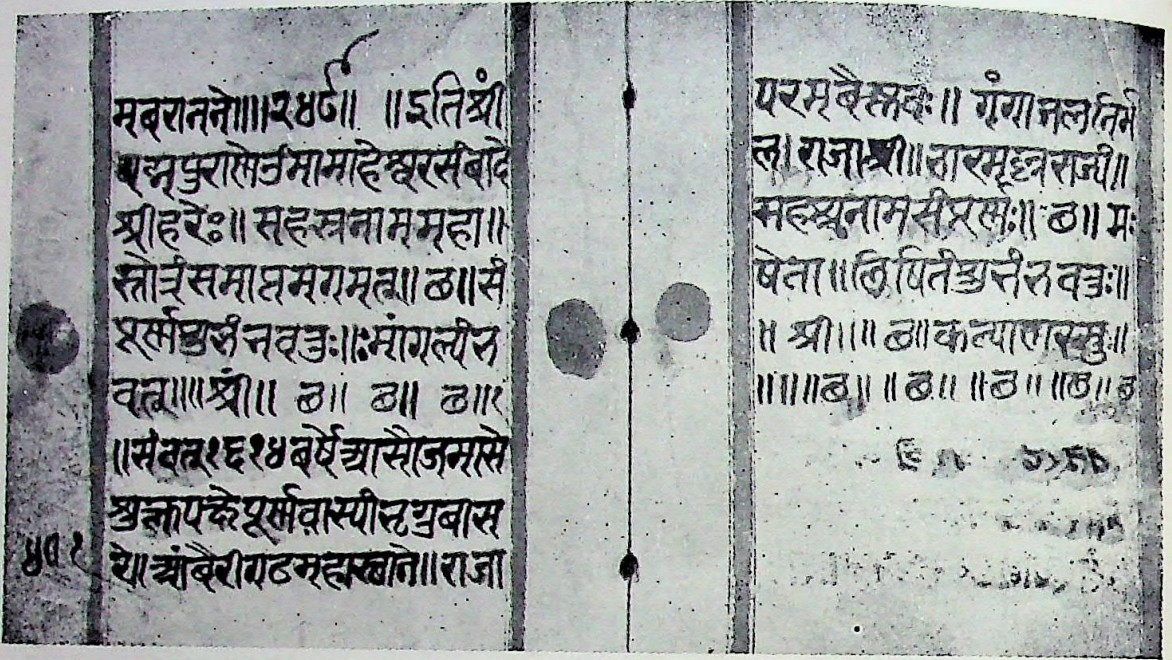 मवरानने॥॥२५९॥ ॥इतिश्री
पद्मपुराणेउमामाहेश्वरसंवादे
श्रीहरेः॥सहस्रनाममहा॥
स्तोत्रंसमाप्तमगमत्॥छ॥सं
पूर्णशुभंभवतुः॥ः॥मांगल्यंभ
वतु॥॥श्रीं॥ छ॥ छ॥ छ॥
॥संवत्१६१४वर्षेआसोजमासे
शुक्लपक्षेपूर्णवास्यांभृगुवास
रे॥आंबैरीगढमहास्थाने॥राजा
५०१
परमवैस्नवः॥ गंगाजलनिर्म
ल।राजाश्री॥भारमल्लराज्यं॥
सहश्रनामसंपूरणः॥छ॥
॥लिषितंशुभंभवतुः॥
॥श्री॥॥छ॥कल्याणरस्तु॥
॥॥॥छ॥ ॥छ॥ ॥छ॥ ॥छ॥ छ